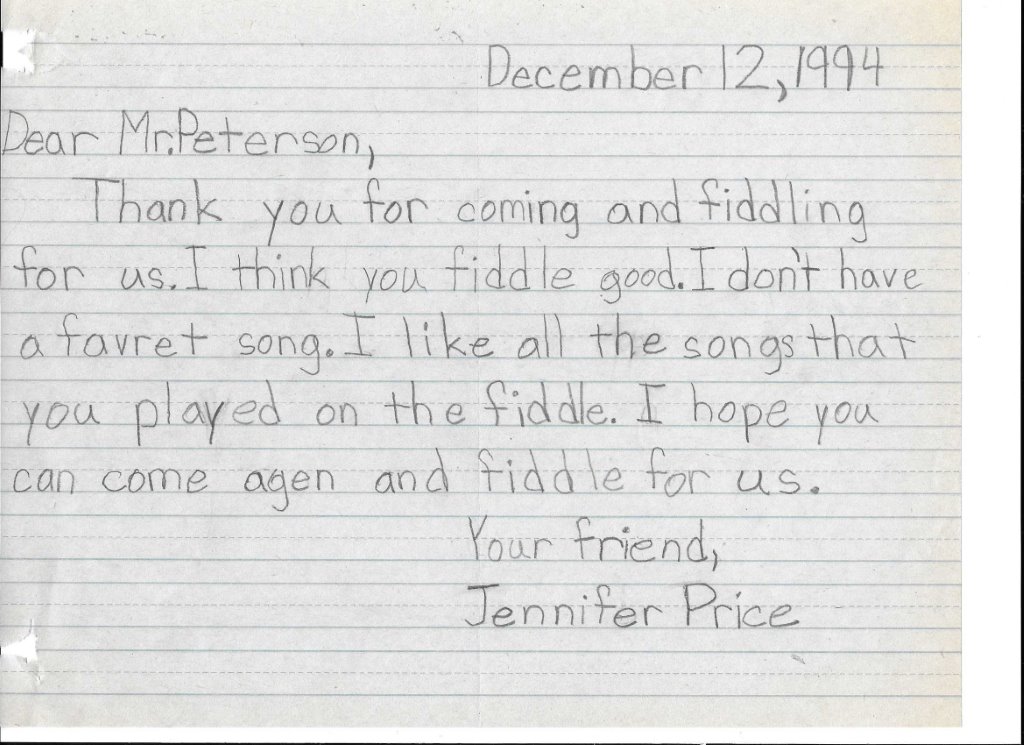 December 12, 1994
Dear Mr. Peterson,
Thank you for coming and fiddling
for us. I think you fiddle good. I don't have
a favret song. I like all the songs that
you played on the fiddle. I hope you
can come agen and fiddle for us.
Your friend,
Jennifer Price